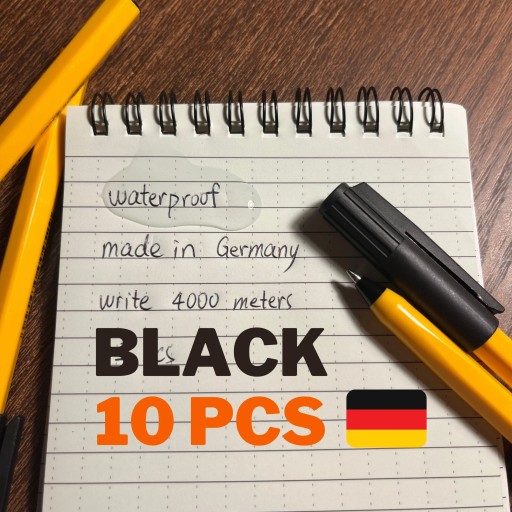 waterproof
made in Germany
write 4000 meters
BLACK
10 PCS